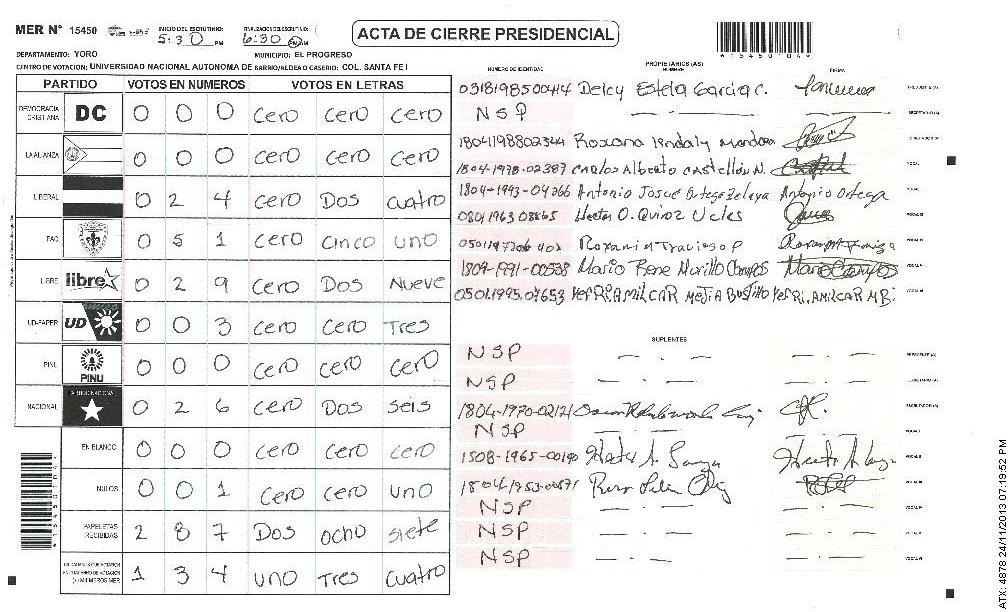 MER N° 15450 INICIO DEL ESCRUTINIO: 5:30 PM FINALIZACION DEL ESCRUTINIO: 6:30 PM
ACTA DE CIERRE PRESIDENCIAL
DEPARTAMENTO: YORO MUNICIPIO: EL PROGRESO
CENTRO DE VOTACION: UNIVERSIDAD NACIONAL AUTONOMA DE BARRIO/ALDEA O CASERIO: COL. SANTA FE I
PARTIDO VOTOS EN NUMEROS VOTOS EN LETRAS
DEMOCRACIA CRISTIANA DC 0 0 0 cero cero cero
LA ALIANZA 0 0 0 cero cero cero
LIBERAL 0 2 4 cero Dos cuatro
PAC 0 5 1 cero cinco uno
LIBRE libre 0 2 9 cero Dos Nueve
UD-FAPER UD 0 0 3 cero cero Tres
PINU PINU 0 0 0 cero cero cero
NACIONAL 0 2 6 cero Dos seis
EN BLANCO 0 0 0 cero cero cero
NULOS 0 0 1 cero cero uno
PAPELETAS RECIBIDAS 2 8 7 Dos ocho siete
1 3 4 uno Tres cuatro
NUMERO DE IDENTIDAD PROPIETARIOS (AS) NOMBRE FIRMA
0318198500414 Delcy Estela Garcia C. PRESIDENTE (A)
NSP SECRETARIO (A)
1804198802344 Roxana
1804-1978-02387 Carlos Alberto Castellón N. VOCAL
1804-1993-04266 Antonio Josué Ortega Zelaya Antonio Ortega
0801 1963 08665 Hector O. Quiroz Ucles
Roxania Travieso P
1804-1991-00538 Mario Rene Murillo Campos Mario Campos
0501.1995.07653 Yerri Amilcar Mejia Bustillo Yerri Amilcar M B.
SUPLENTES
NSP PRESIDENTE (A)
NSP SECRETARIO (A)
1804-1970-02121
NSP
1508-1965-00190 Hector A.
1804-1953-00571
NSP
NSP
NSP
ATX: 4878 24/11/2013 07:19:52 PM